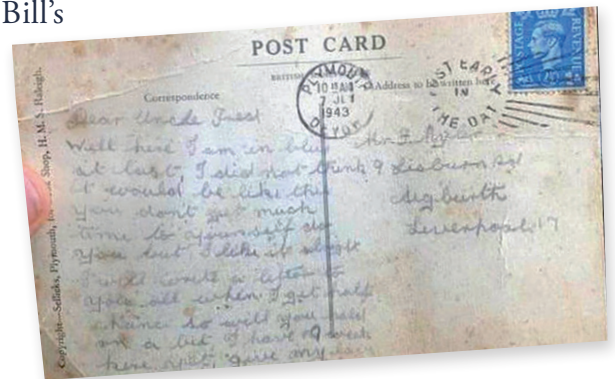 Bill's
POST CARD
BRITISH
Correspondence
Address to be written here
PLYMOUTH
10 AM
7 JLY
1943
DEVON
POST EARLY
IN
THE DAY
POSTAGE REVENUE
Copyright—Sellicks, Plymouth, Shop, H.M.S. Raleigh.
Dear Uncle Fred
Well here I am in blue
at last, I did not think
it would be like this
you don't get much
time to yourself do
you but I like it alright
I will write a letter to
you all when I get half
chance so will you wait
on a bit, I have 9 week
here yet, give my
Mr F.
9 Lisburn Rd
Aigburth
Liverpool 17